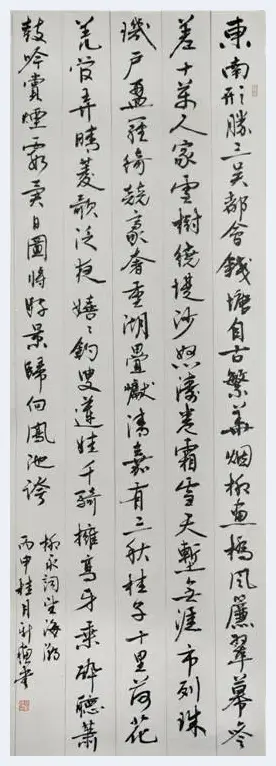 東南形勝三吳都會錢塘自古繁華烟柳畫橋風簾翠幕參
差十萬人家雲樹繞堤沙怒濤卷霜雪天塹無涯市列珠
璣戶盈羅綺競豪奢重湖疊巘清嘉有三秋桂子十里荷花
羌管弄晴菱歌泛夜嬉〻釣叟蓮娃千騎擁高牙乘醉聽蕭
鼓吟賞煙霞異日圖將好景歸向鳳池誇
柳永詞望海潮
丙申桂月